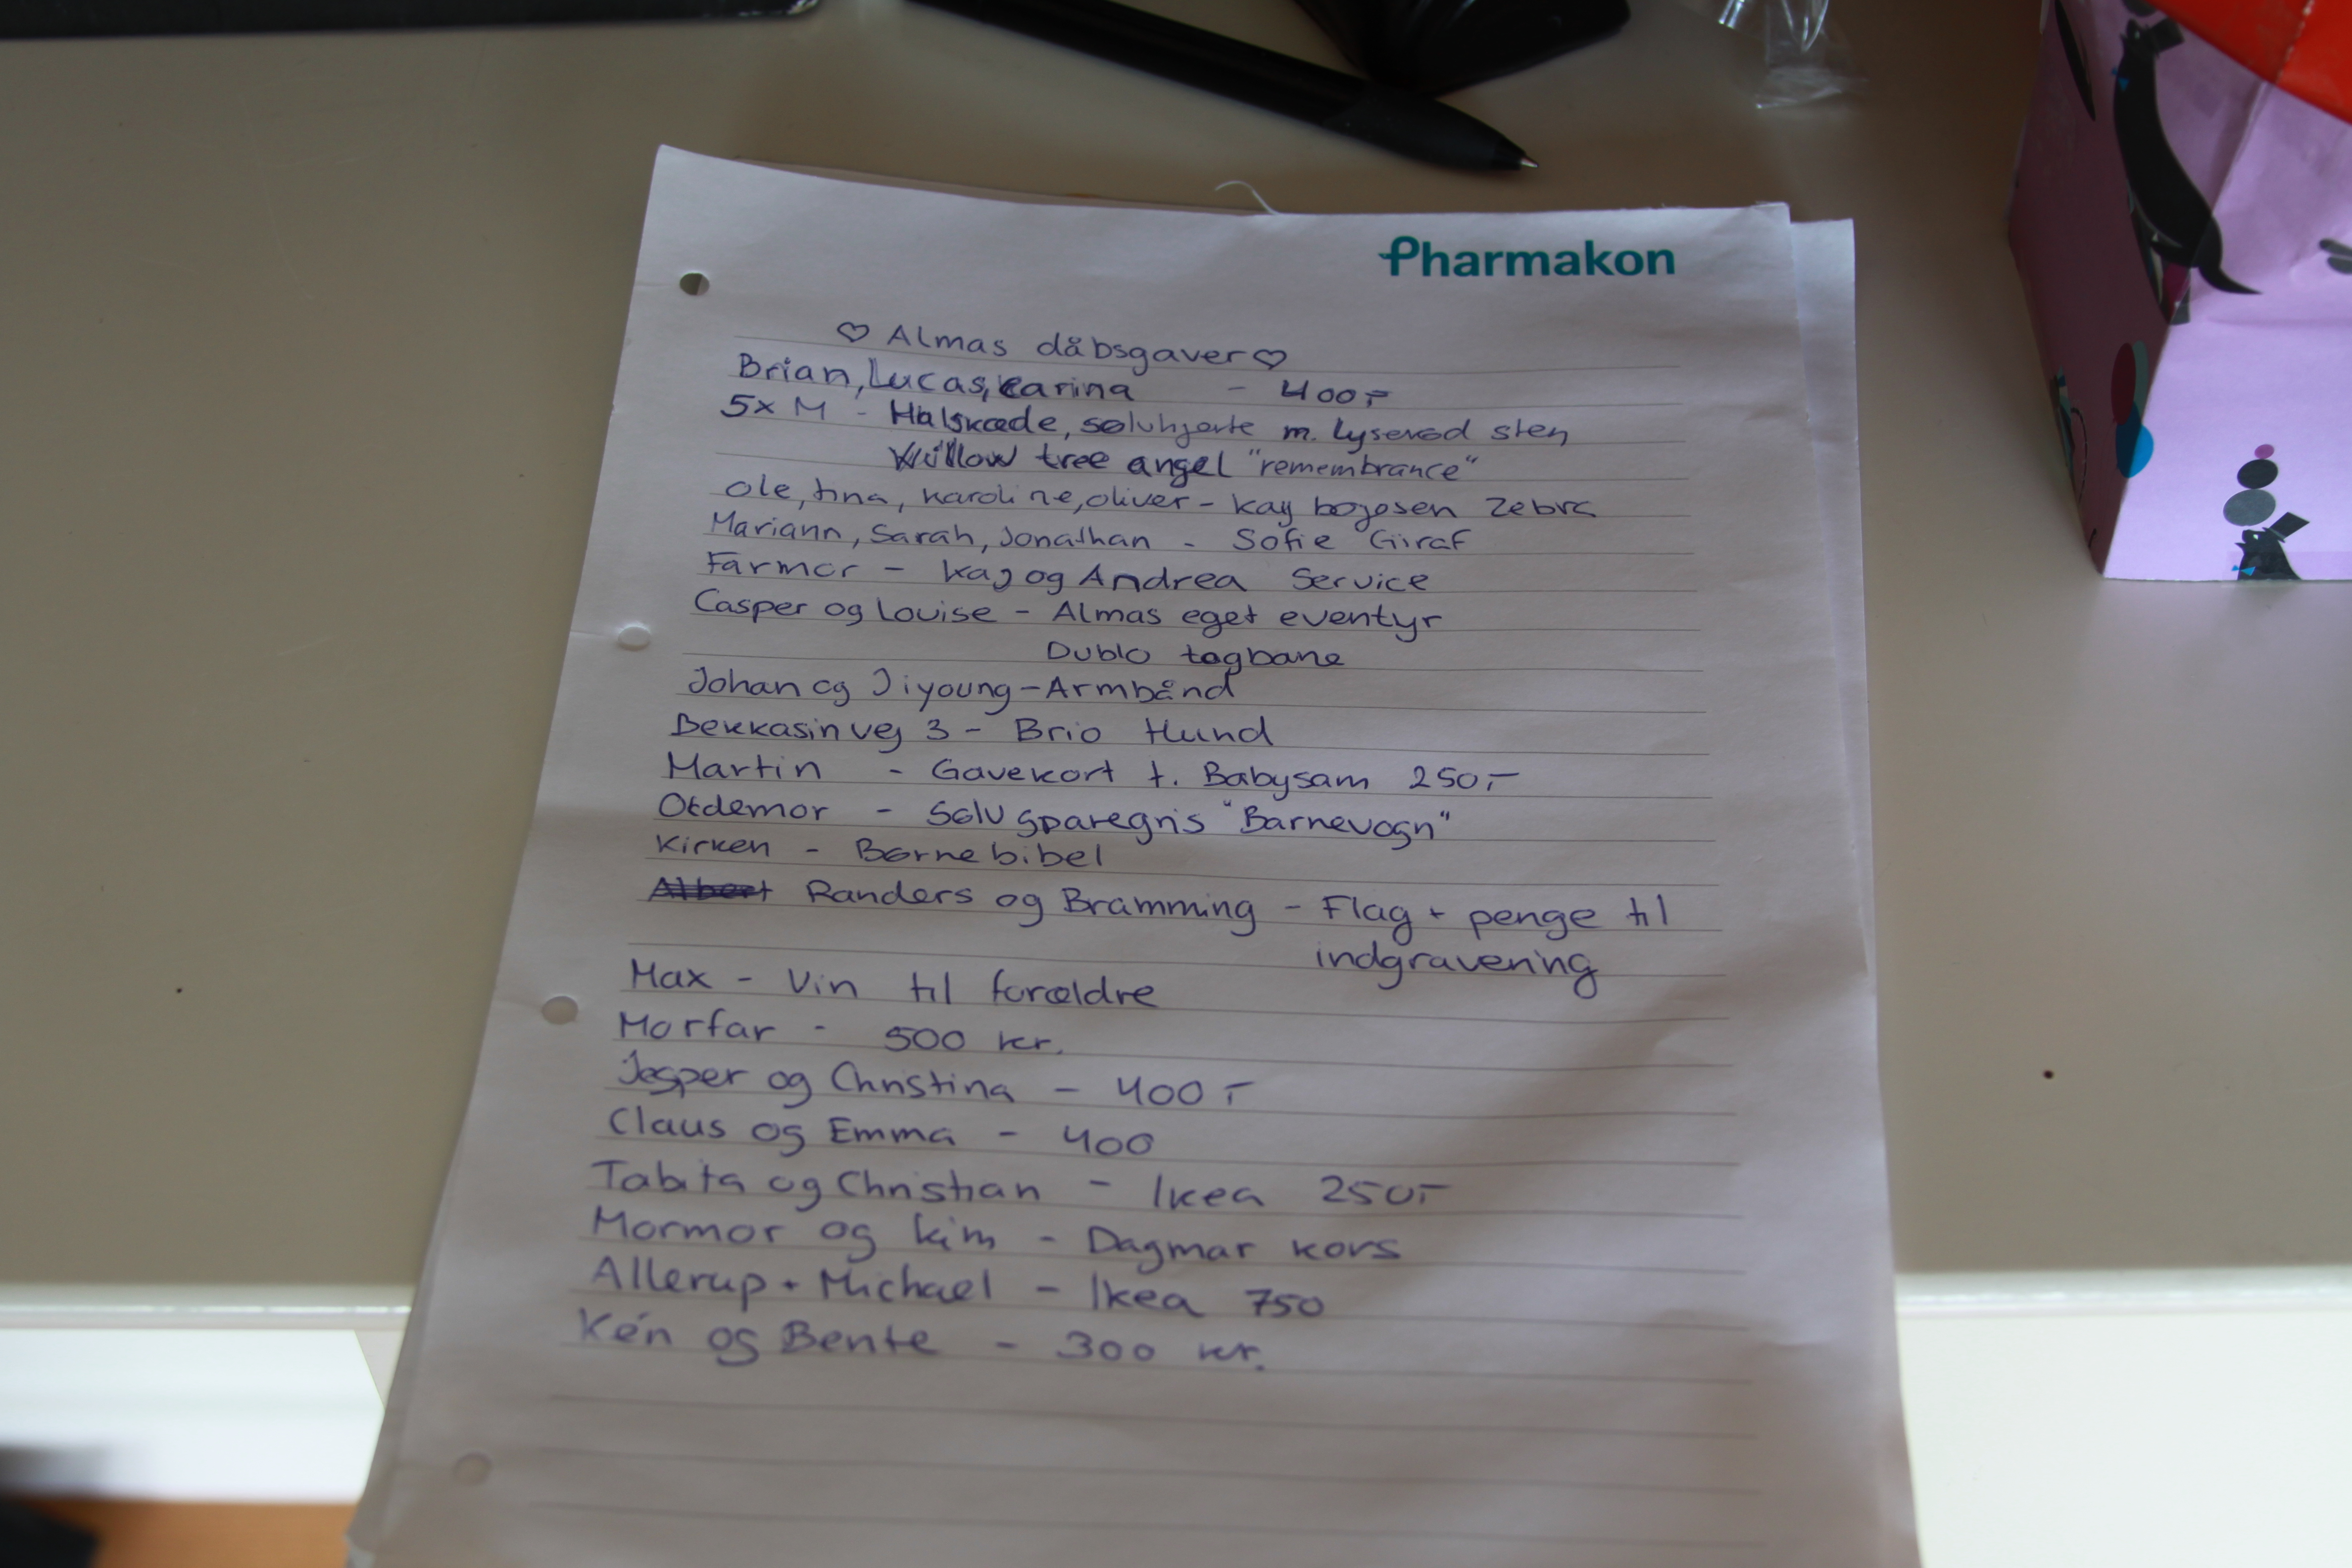 Pharmakon
♡ Almas dåbsgaver ♡
Brian, Lucas, Carina - 400,-
5x M - Halskæde, sølvhjerte m. lyserød sten
Willow tree angel "remembrance"
Ole, tina, karoline, oliver - kay bojesen Zebra
Mariann, Sarah, Jonathan - Sofie Giraf
Farmor - Kaj og Andrea Service
Casper og Louise - Almas eget eventyr
Dublo togbane
Johan og Jiyoung - Armbånd
Bekkasinvej 3 - Brio Hund
Martin - Gavekort t. Babysam 250,-
Oldemor - Sølv sparegris "Barnevogn"
Kirken - Børnebibel
Albert Randers og Bramming - Flag + penge til
indgravering
Max - Vin til forældre
Morfar - 500 kr.
Jesper og Christina - 400,-
Claus og Emma - 400
Tabita og Christian - Ikea 250,-
Mormor og Kim - Dagmar kors
Allerup + Michael - Ikea 750
Kén og Bente - 300 kr.